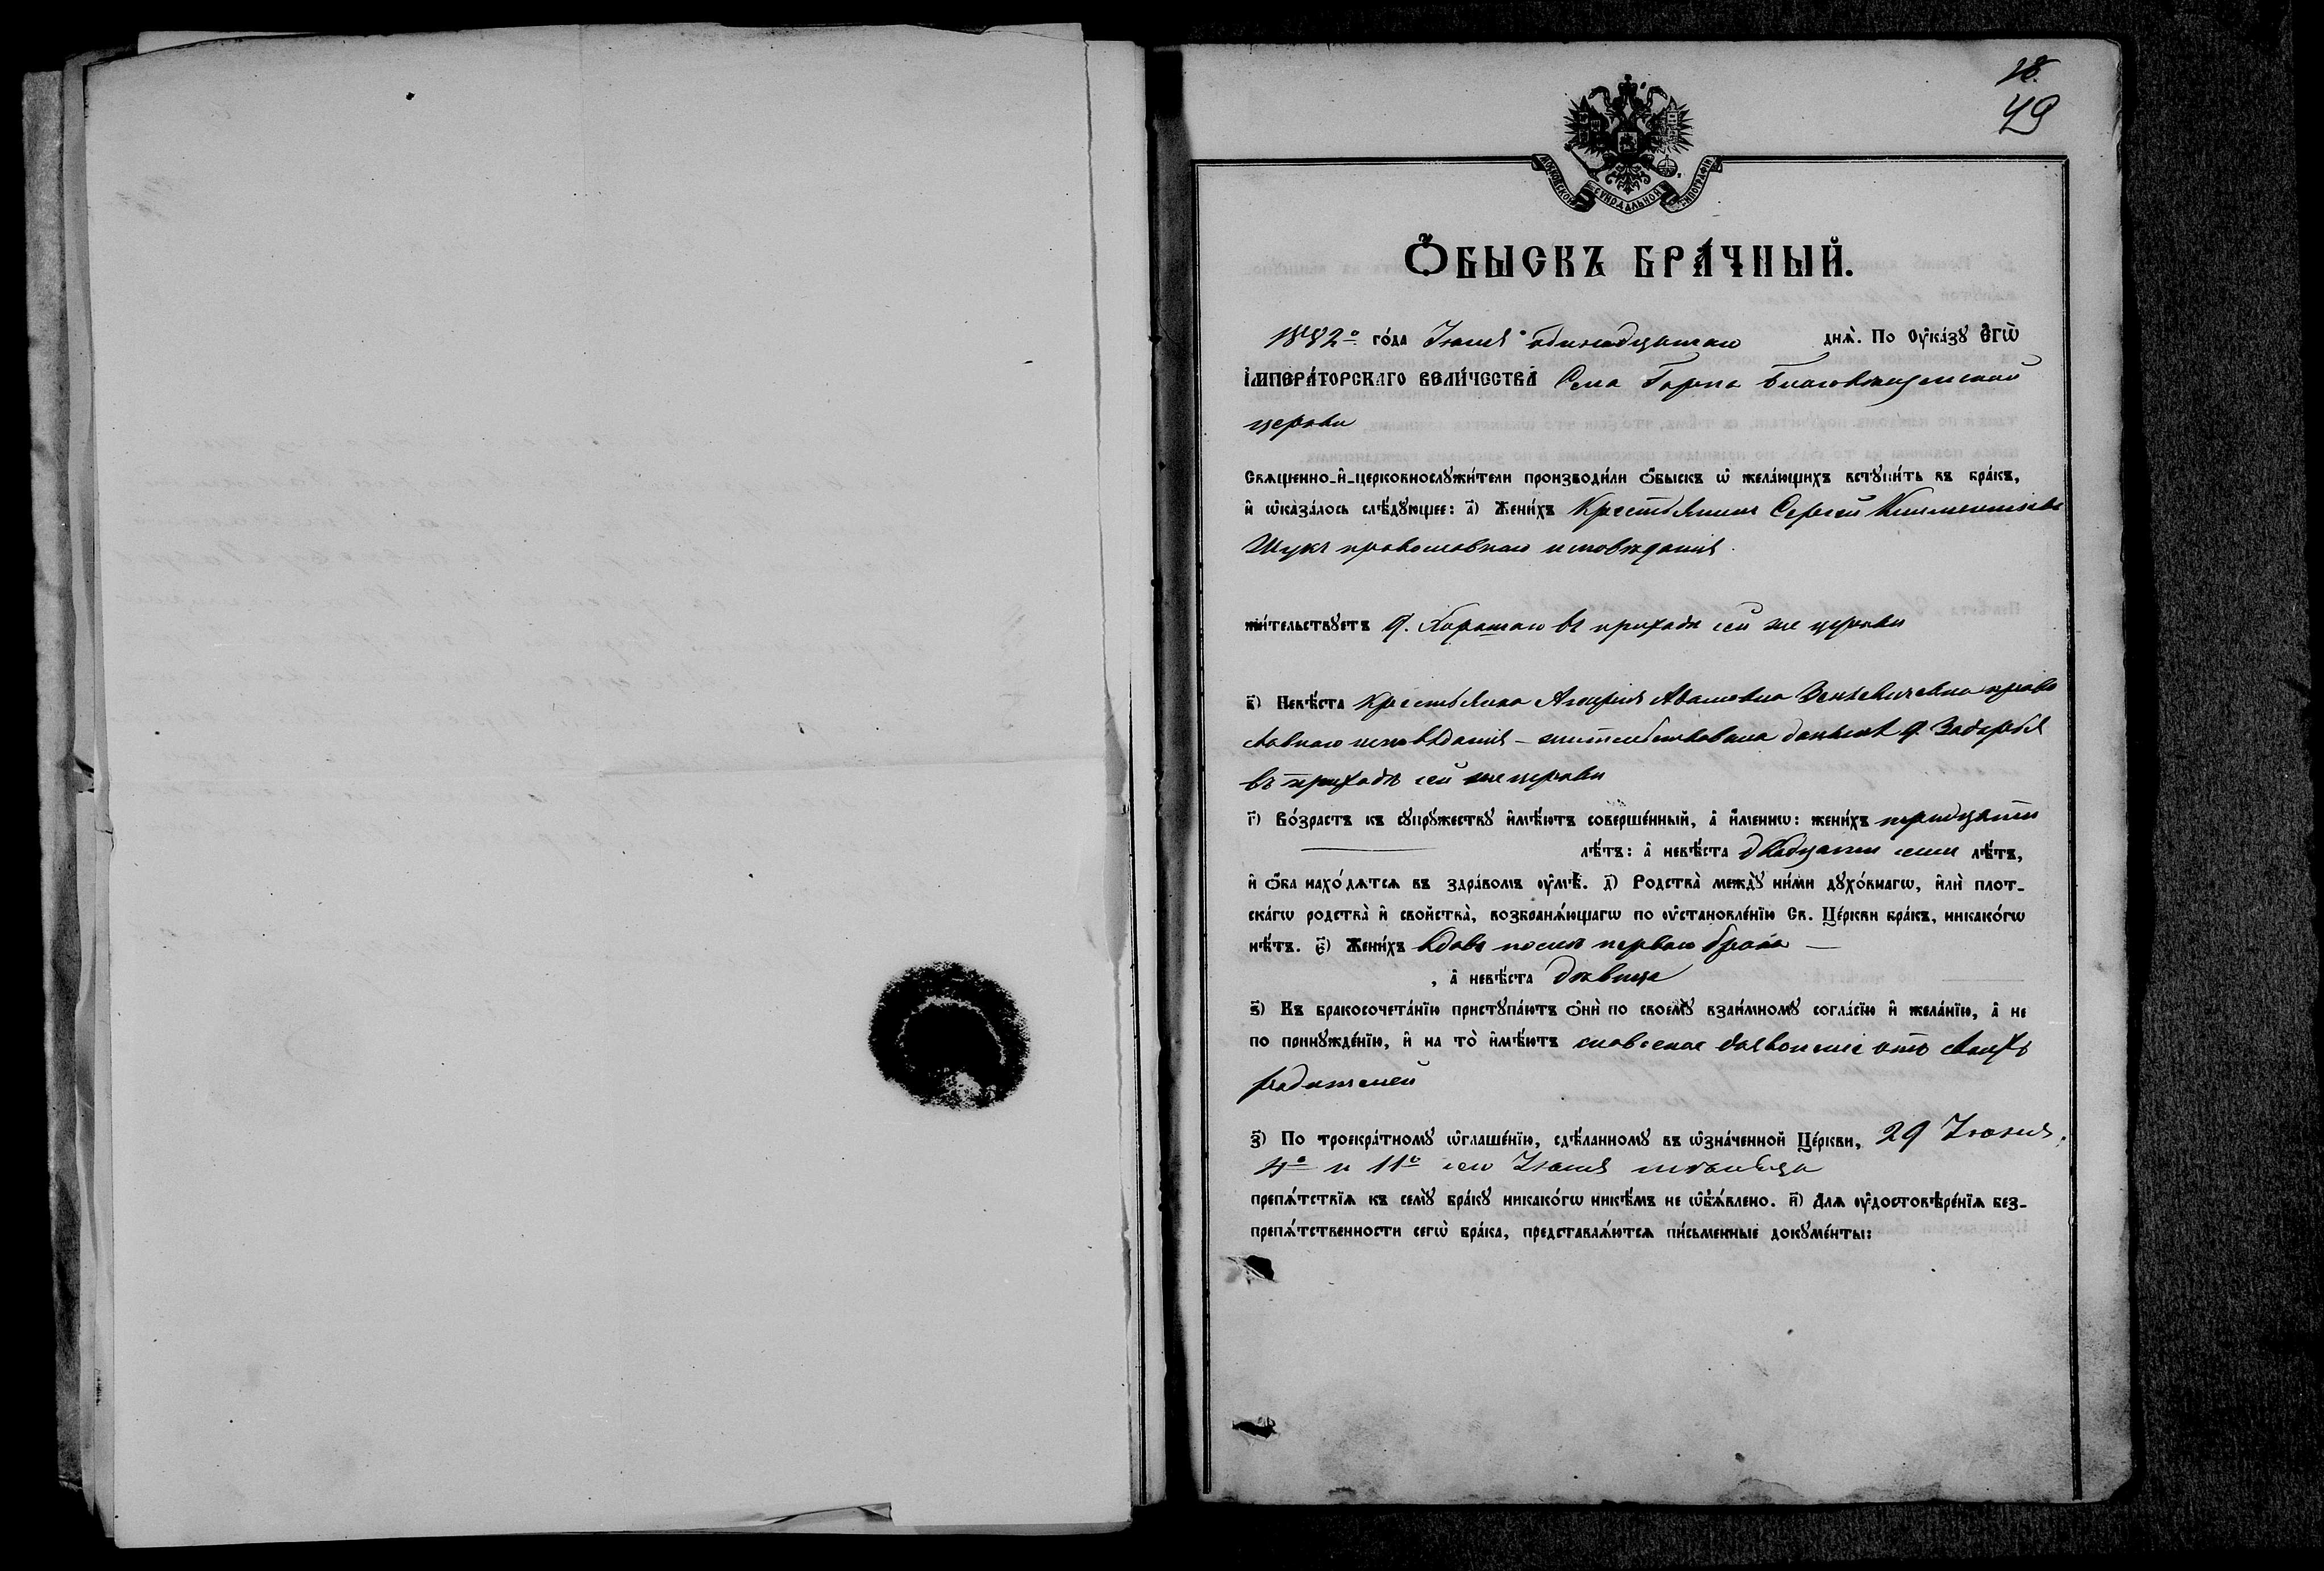 18.
49
МОСКОВСКОЙ СѴНОДАЛЬНОЙ ТИПОГРАФІИ
Ѻ҆БЫСКЪ БРА́ЧНЫЙ.
1882º го́да Іюля одинадцатаго днѧ̀. По Оу҆ка́зꙋ Є҆гѡ̀
І҆мпера́торскагѡ Вели́чества Села Горна Благовѣщенской
церкви
Свѧщенно-и҆-церковнослꙋжи́тели производи́ли ѻ҆́быскъ ѡ҆ жела́ющихъ встꙋпи́ть въ бра́къ,
и҆ ѡ҆каза́лось слѣ́дꙋющее: а҃) Жени́хъ Крестьянинъ Сергѣй Климентіевъ
Шукъ православнаго исповѣданія.
жи́тельствꙋетъ въ приходѣ сей же церкви
в҃) Невѣ́ста Крестьянка Агафія Адамовна Зенкевичевна право
славнаго исповѣданія – жительствовала доныне д. Задербя
въ приходѣ сей же церкви
г҃) Во́зрастъ къ сꙋпрꙋ́жествꙋ и҆мѣ́ютъ соверше́нный, а҆ и҆́меннѡ: жени́хъ тридцати
лѣ́тъ: а҆ невѣ́ста двадцати семи лѣ́тъ,
и҆ ѻ҆́ба нахо́дѧтсѧ въ здра́вомъ оу҆мѣ̀. д҃) Родства̀ междꙋ̀ ни́ми дꙋхо́внагѡ, и҆лѝ плот-
ска́гѡ родства̀ и҆ свойства̀, возбранѧ́ющагѡ по оу҆становле́нїю Св. Це́ркви бра́къ, никако́гѡ
нѣ́тъ. є҃) Жени́хъ вдовъ послѣ перваго брака —
, а҆ невѣ́ста дѣвица
ѕ҃) Къ бракосочета́нїю пристꙋпа́ютъ ѻ҆нѝ по своемꙋ̀ взаи́мномꙋ согла́сїю и҆ жела́нїю, а҆ не
по принꙋжде́нїю, и҆ на то̀ и҆мѣ́ютъ словесное дозволеніе отъ своихъ
родителей
з҃) По троекра́тномꙋ ѡ҆глаше́нїю, сдѣ́ланномꙋ въ ѡ҆зна́ченной Це́ркви, 29 Іюня,
4º и 11º сего Іюля мѣсяца
препѧ́тствїѧ къ семꙋ̀ бра́кꙋ никако́гѡ никѣ́мъ не ѡ҆б̾ѧ́влено. и҃) Длѧ оу҆достовѣре́нїѧ без-
препѧ́тственности сегѡ̀ бра́ка, представлѧ́ютсѧ пи́сьменные докꙋме́нты: